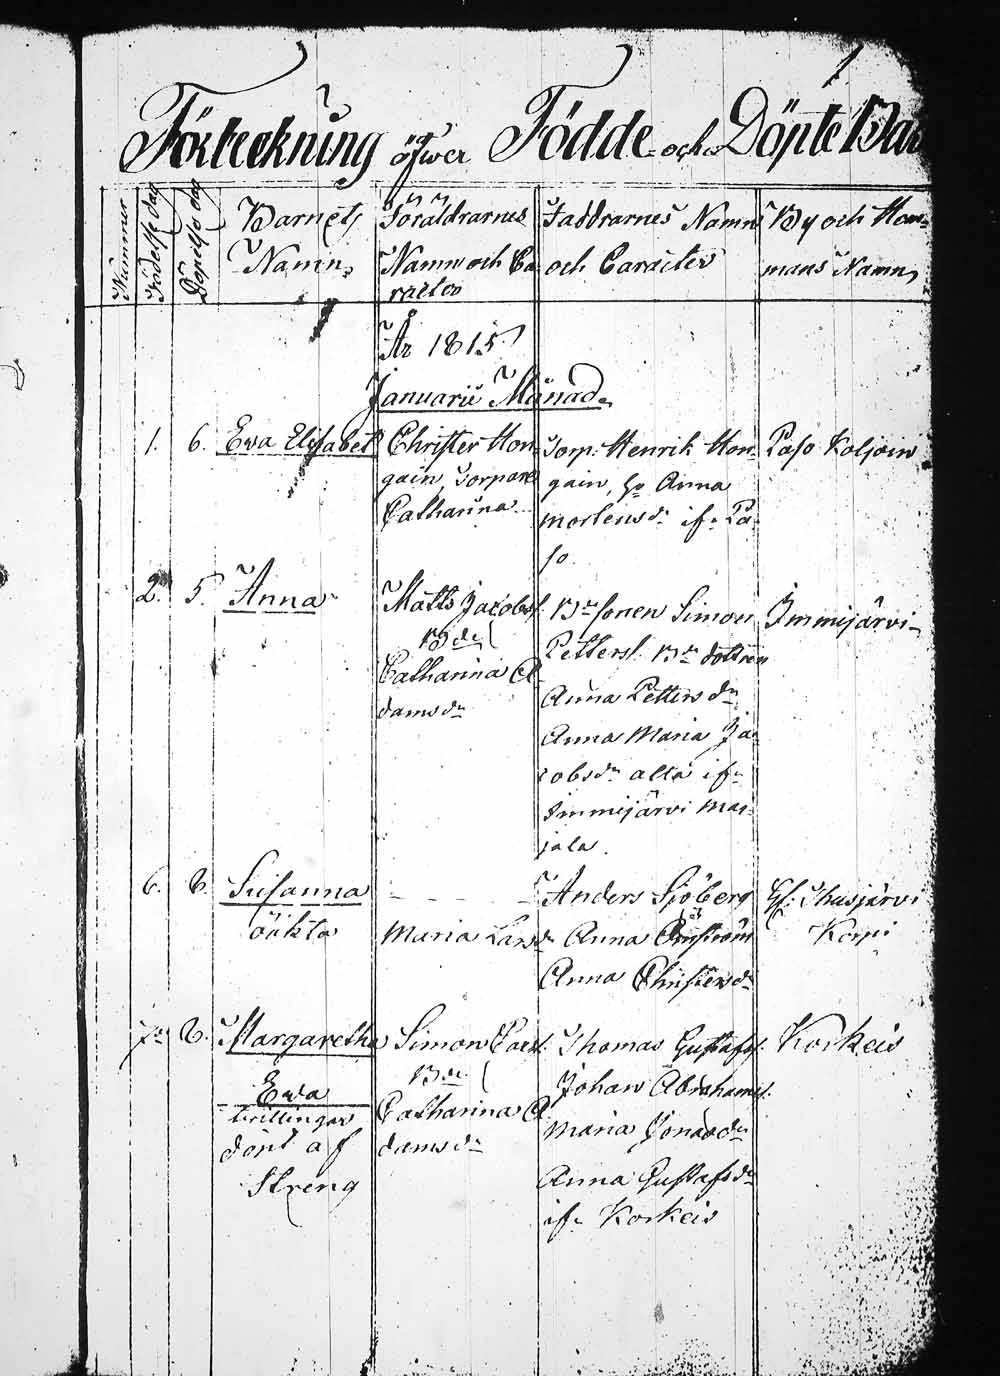 1
Förteckning öfwer Födde och Döpte Bar
Nummer
Födelse dag
Döpelse dag
Barnets
Namn
Föräldrarnes
Namn och Ca-
racter
Faddrarnes Namn
och Caracter
By och Hem-
mans Namn
År 1815
Januarii Månad
1. 6. Ewa Elisabet
Christer Hon-
gain Torpare
Catharina
Torp. Henrik Hon-
gain, H. Anna
Mortensdr. ifr. Pa-
so
Paso Koljoin
2. 5. Anna
Matts Jacobss.
Bde
Catharina A-
damsdr
Bdesonen Simon
Petterss. Bdedottren
Anna Pettersdr
Anna Maria Ja-
cobsdr alla ifr
Immijärvi Mar-
jala
Immijärvi
6. 8. Susanna
oäkta
Maria Larsdr
Anders Sjöberg
Anna
Anna Christersdr
Ihusjärvi
Korpi
7. 8. Margaretha
Ewa
twillingar
dönt af
Streng
Simon Carls.
Bde
Catharina A
damsdr
Thomas Gustafss.
Johan Abrahamss.
Maria Jonasdr
Anna Gustafsdr
ifr. Korkeis
Korkeis